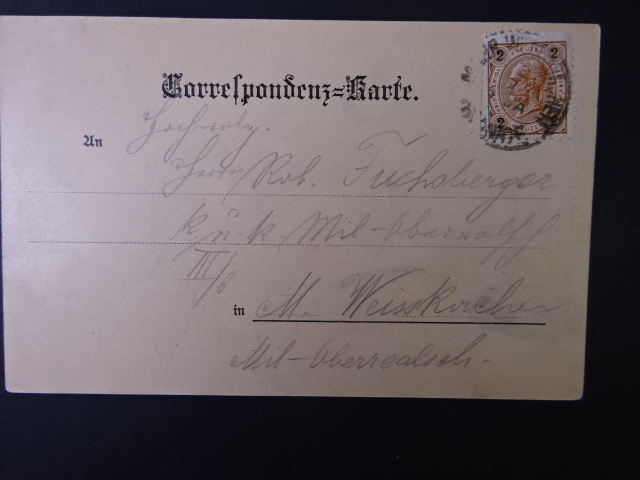 2 KREUZER 2
2 2
Correspondenz=Karte.
Hochwolg.
An
Herrn Rob. Fuchsberger
k. u. k Mil-Oberrealsch
III/b
in M. Weisskirchen
Mil-Oberrealsch-